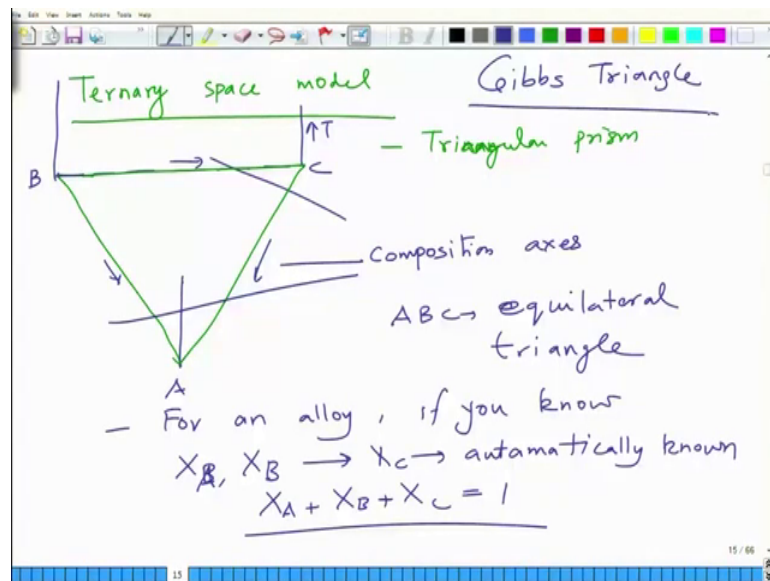 File Edit View Insert Actions Tools Help
B I
Ternary space model
Gibbs Triangle
↑T
– Triangular prism
B
C
Composition axes
ABC→ equilateral
triangle
A
– For an alloy, if you know
X_A, X_B → X_C → automatically known
X_A + X_B + X_C = 1
15 / 66
15